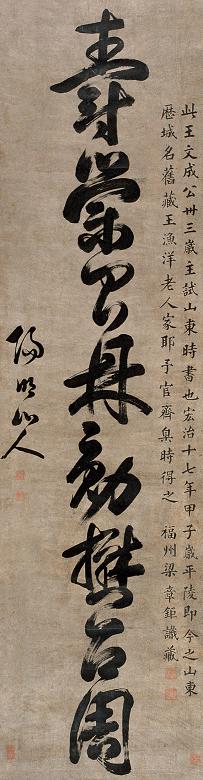 此王文成公卅三歲主試山東時書也宏治十七年甲子歲平陵即今之山東
歷城名舊藏王漁洋老人家耶予官齊臬時得之　福州梁章鉅識藏
壽
丹
勳
古周
陽明山人